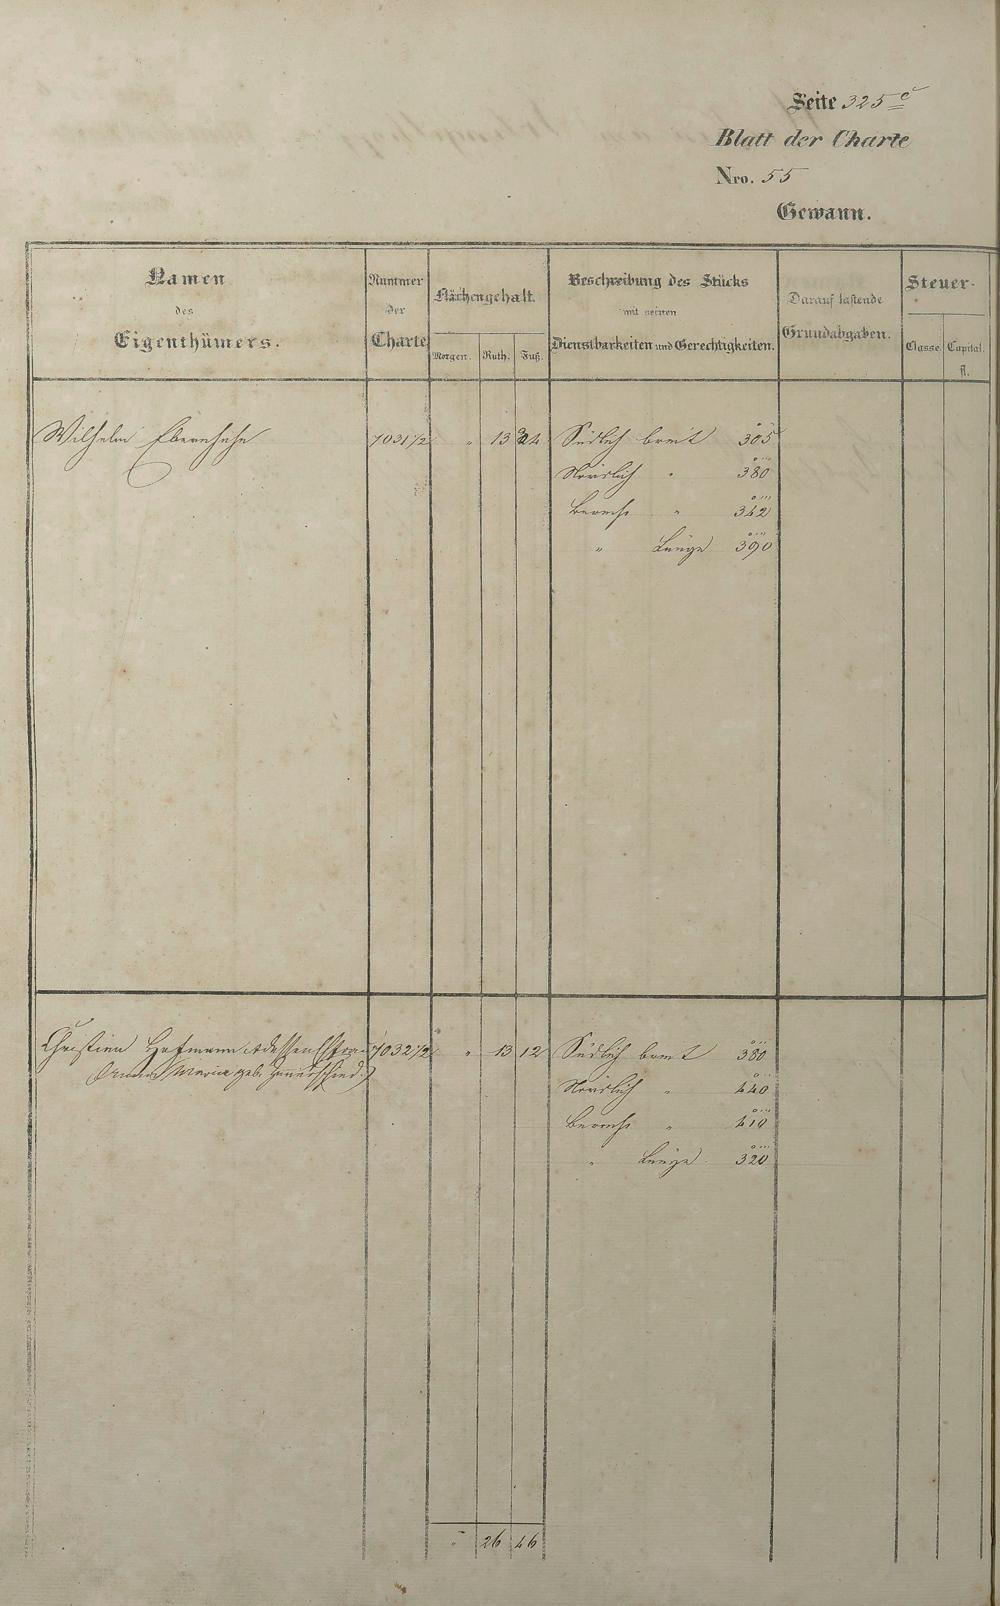 Seite 325 c
Blatt der Charte
Nro. 55
Gewann.
Namen
des
Eigenthümers.
Nummer
der
Charte
Flächengehalt.
Morgen. Ruth. Fuß.
Beschreibung des Stücks
mit seinen
Dienstbarkeiten und Gerechtigkeiten.
Darauf lastende
Grundabgaben.
Steuer-
Classe. Capital.
fl.
Wilhelm 7031 1/2 " 13 34 Südlich breit 305
Nördlich " 380
" 342
" Länge 390
Christian Hofmann 7032 1/2 " 13 12 Südlich breit 380
Anna Maria geb. Nördlich " 440
" 410
" Länge 320
" 26 46